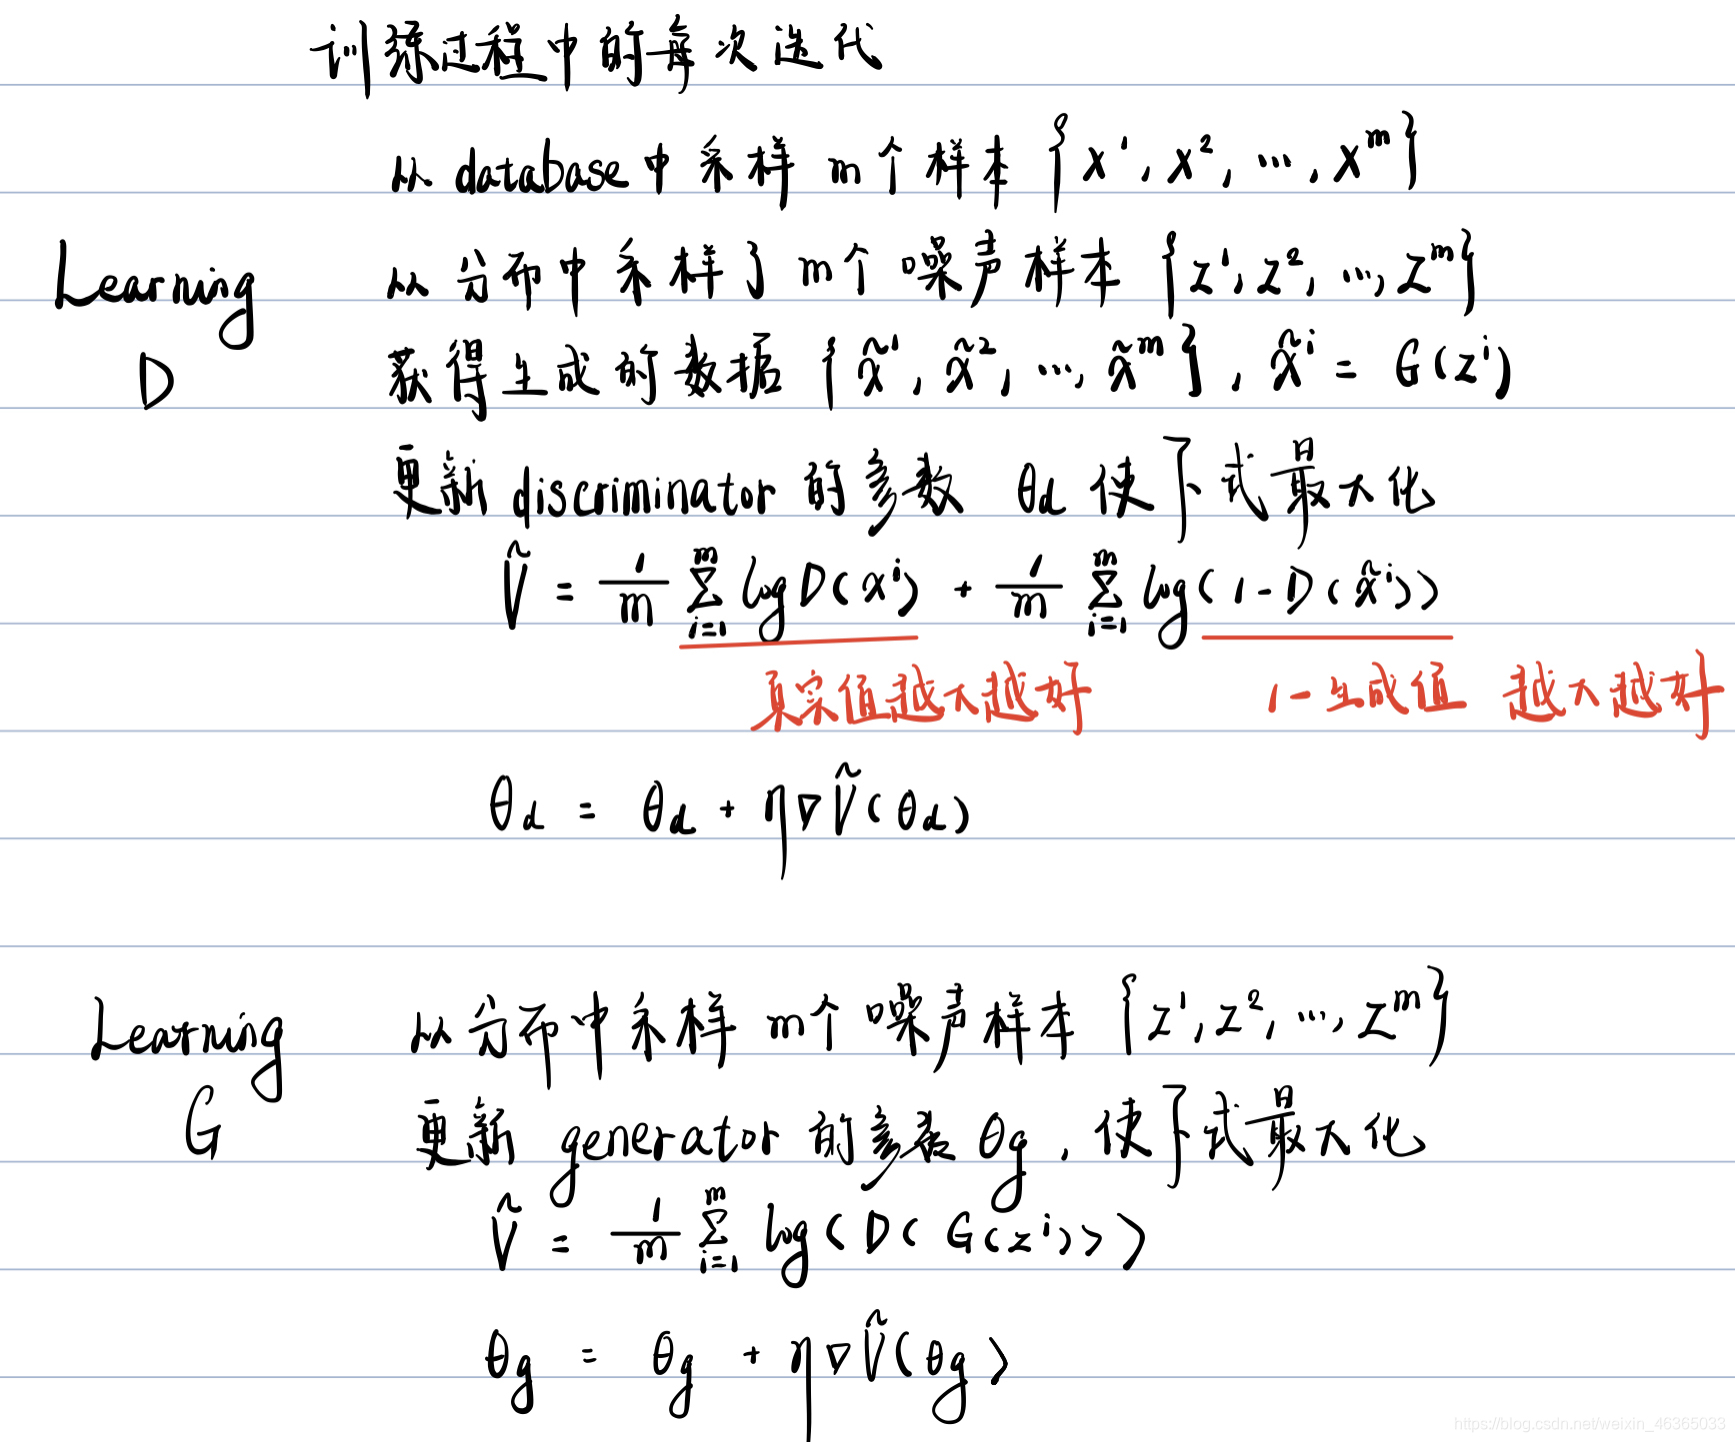 训练过程中的每次迭代
从 database 中采样 m 个样本 {x¹, x², ..., xᵐ}
Learning D
从分布中采样了 m个噪声样本 {z¹, z², ..., zᵐ}
获得生成的数据 {x̃¹, x̃², ..., x̃ᵐ}, x̃ⁱ = G(zⁱ)
更新 discriminator 的参数 θd 使下式最大化
Ṽ = 1/m Σᵢ₌₁ᵐ log D(xⁱ) + 1/m Σᵢ₌₁ᵐ log(1 - D(x̃ⁱ))
真实值越大越好 1-生成值 越大越好
θd = θd + η∇Ṽ(θd)
Learning G
从分布中采样 m个噪声样本 {z¹, z², ..., zᵐ}
更新 generator 的参数 θg, 使下式最大化
Ṽ = 1/m Σᵢ₌₁ᵐ log(D(G(zⁱ)))
θg = θg + η∇Ṽ(θg)
https://blog.csdn.net/weixin_46365033